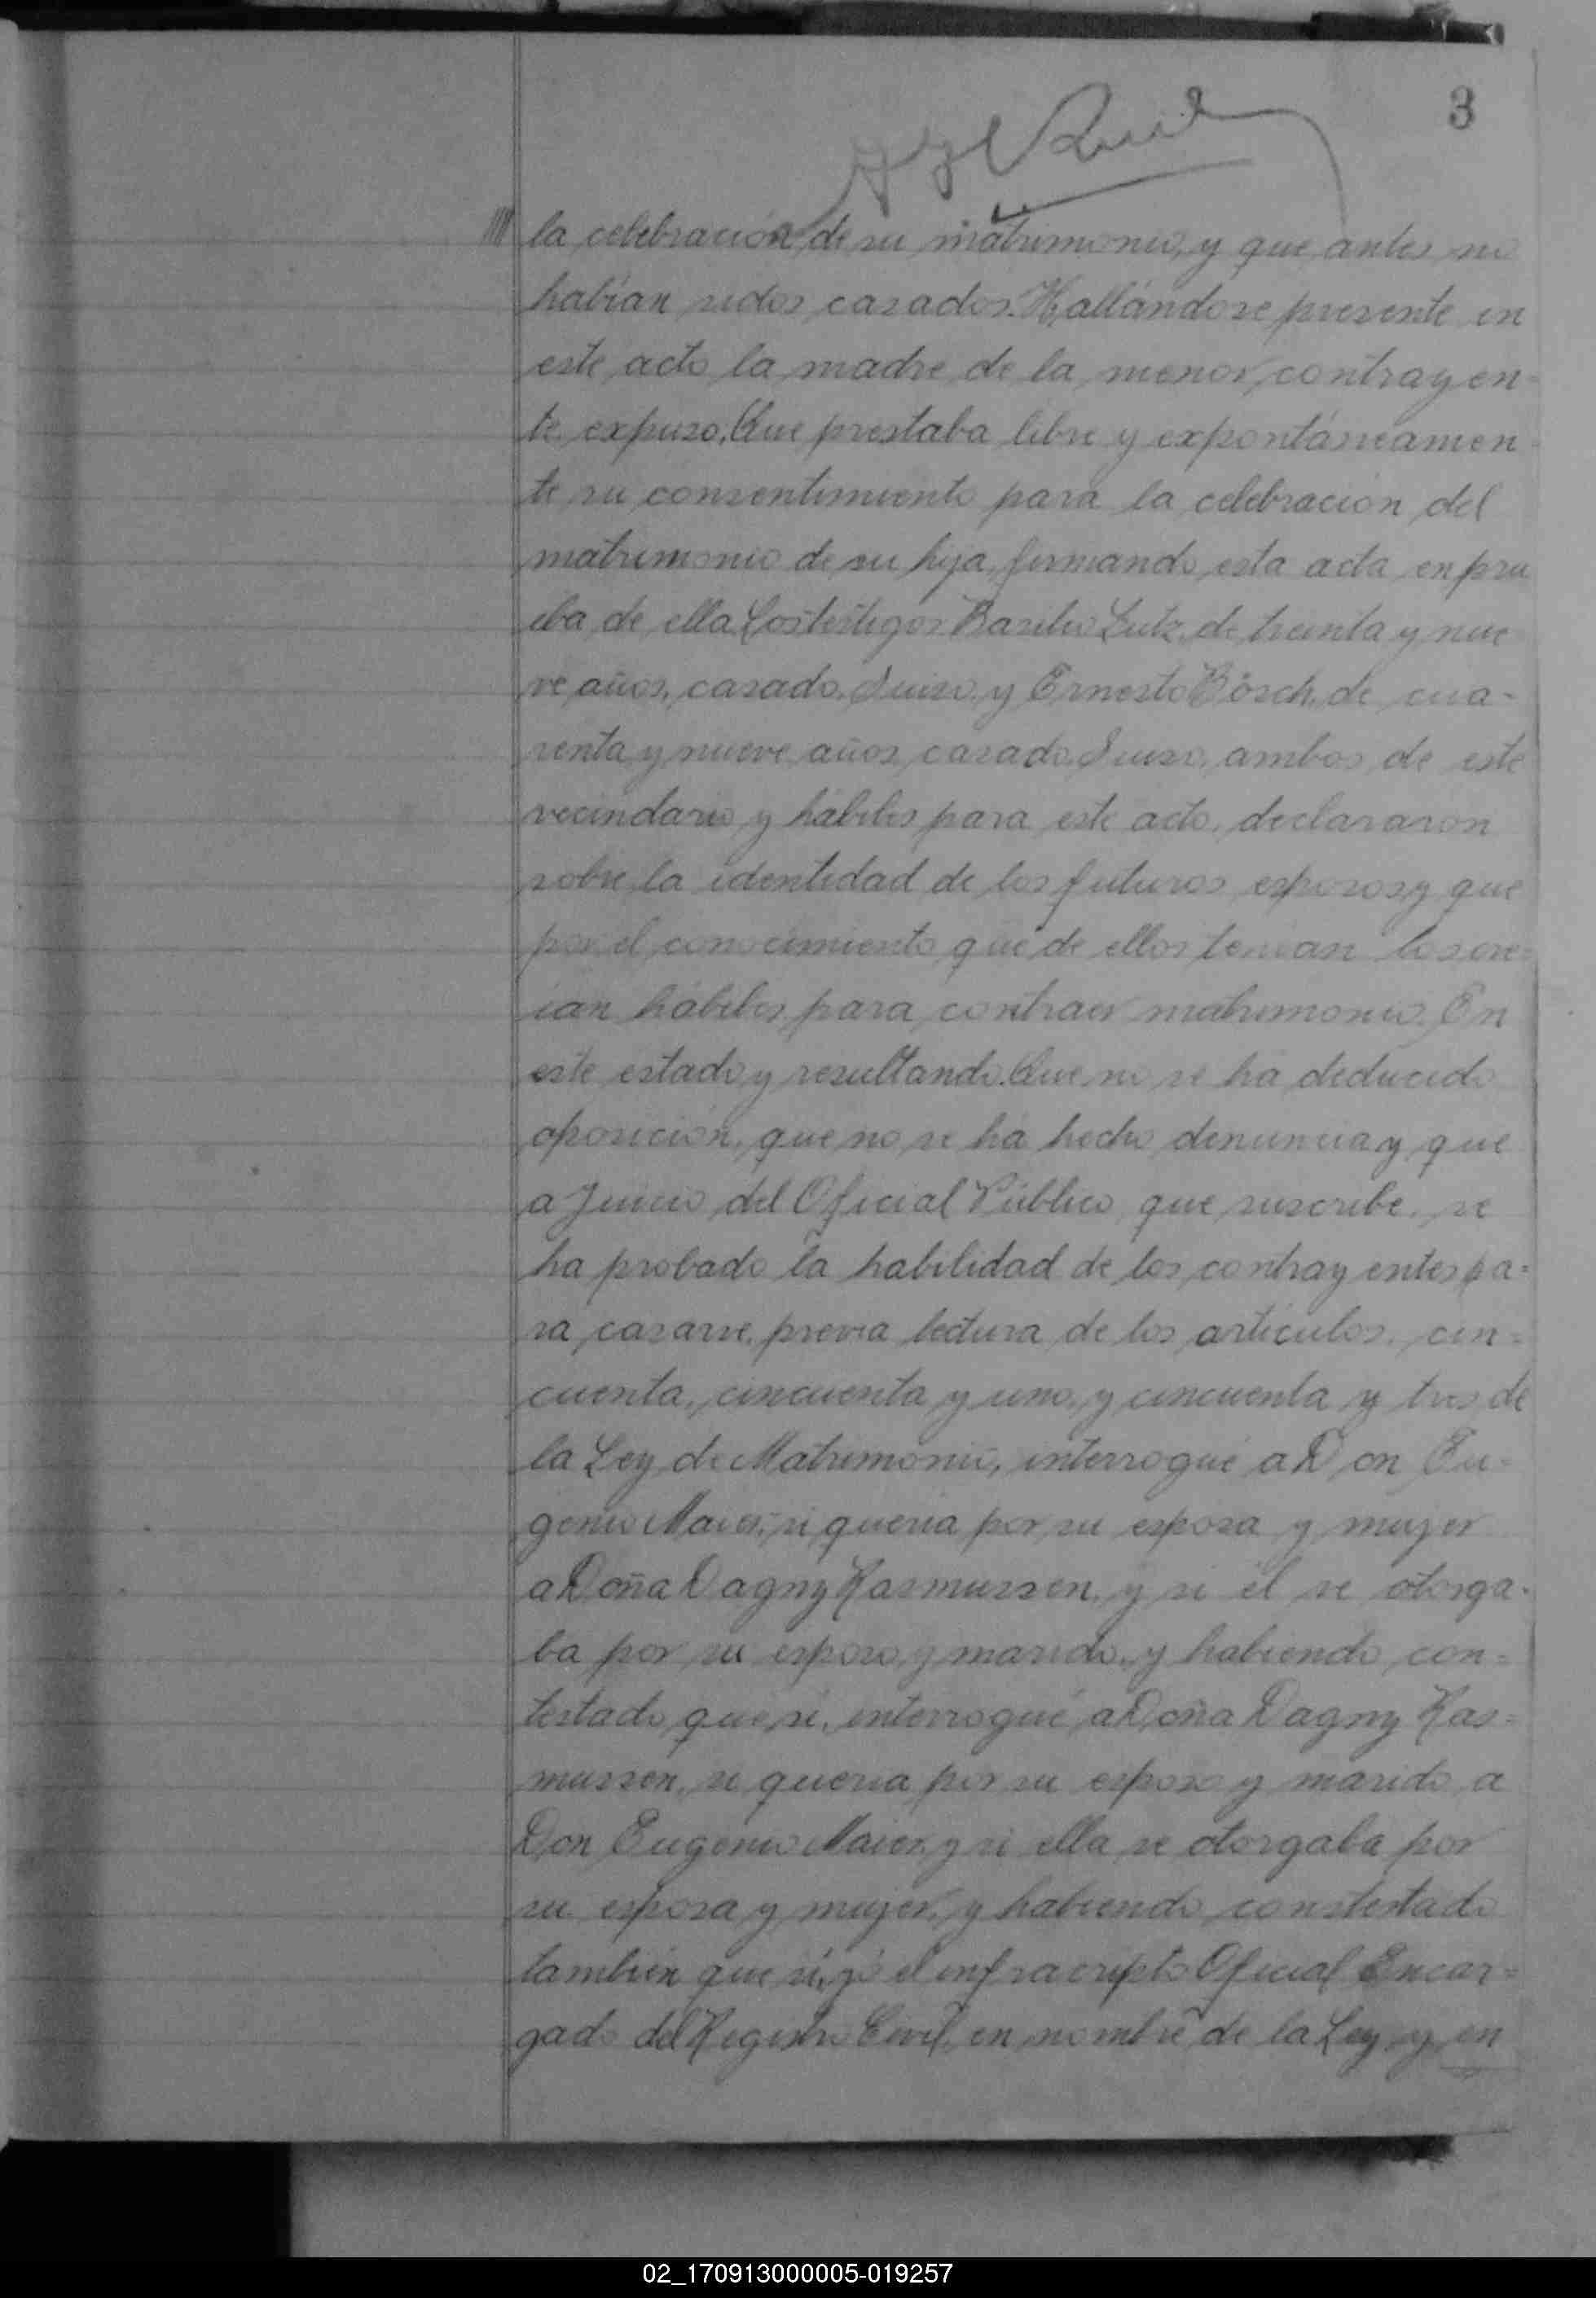 3
la celebración de su matrimonio, y que antes no
habían sidos casados. Hallándose presente en
este acto la madre de la menor contrayen-
te expuso. Que prestaba libre y expontáneamen-
te su consentimiento para la celebración del
matrimonio de su hija, firmando esta acta en pru
eba de ella. Los testigos Basilio Lutz, de treinta y nue
ve años, casado, Suizo, y Ernesto Bösch, de cua-
renta y nueve años, casado, Suizo, ambos de este
vecindario y hábiles para este acto, declararon
sobre la identidad de los futuros esposos, y que
por el conocimiento que de ellos tenían los cre-
ían hábiles para contraer matrimonio. En
este estado y resultando. Que no se ha deducido
oposición, que no se ha hecho denuncia y que
a Juicio del Oficial Público que suscribe, se
ha probado la habilidad de los contrayentes pa-
ra casarse, previa lectura de los artículos, cin-
cuenta, cincuenta y uno, y cincuenta y tres de
la Ley de Matrimonio, interrogué a Don Eu-
genio Maier, si quería por su esposa y mujer
a Doña Dagny Rasmussen, y si él se otorga-
ba por su esposo y marido, y habiendo con-
testado que sí, interrogué a Doña Dagny Ras-
mussen, si quería por su esposo y marido a
Don Eugenio Maier, y si ella se otorgaba por
su esposa y mujer, y habiendo constestado
también que sí, yo el infracripto Oficial Encar-
gado del Registro Civil, en nombre de la Ley y en
02_170913000005-019257